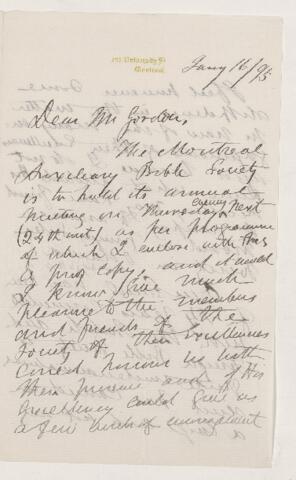 Jany 16/95
Dear Mr Gordon,
The Montreal
Auxiliary Bible Society
is to hold its annual
meeting on Thursday evening next
(24th inst) as per programme
of which I enclose with this
a proof copy, and it would
I know give much
pleasure to the members
and friends of the
Society if their Excellencies
could honour us with
their presence and if His
Excellency could give us
a few words of encouragement